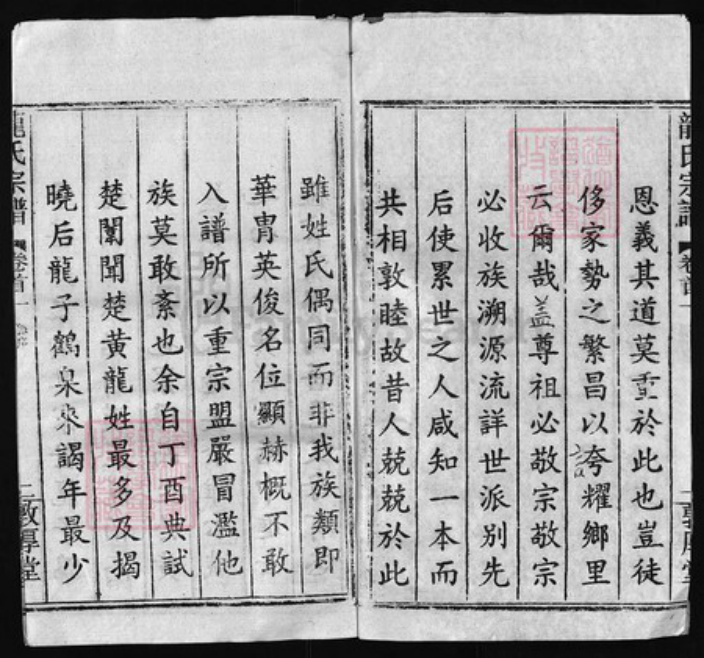 龍氏宗譜 卷首 一 敦厚堂
恩義其道莫重於此也豈徒
侈家勢之繁昌以誇耀鄉里
云爾哉蓋尊祖必敬宗敬宗
必收族溯源流詳世派别先
后使累世之人咸知一本而
共相敦睦故昔人兢兢於此
雖姓氏偶同而非我族類即
華冑英俊名位顯赫概不敢
入譜所以重宗盟嚴冒濫他
族莫敢紊也余自丁酉典試
楚闈聞楚黄龍姓最多及揭
曉后龍子鶴臯來謁年最少
龍氏宗譜 卷首 一 二 敦厚堂